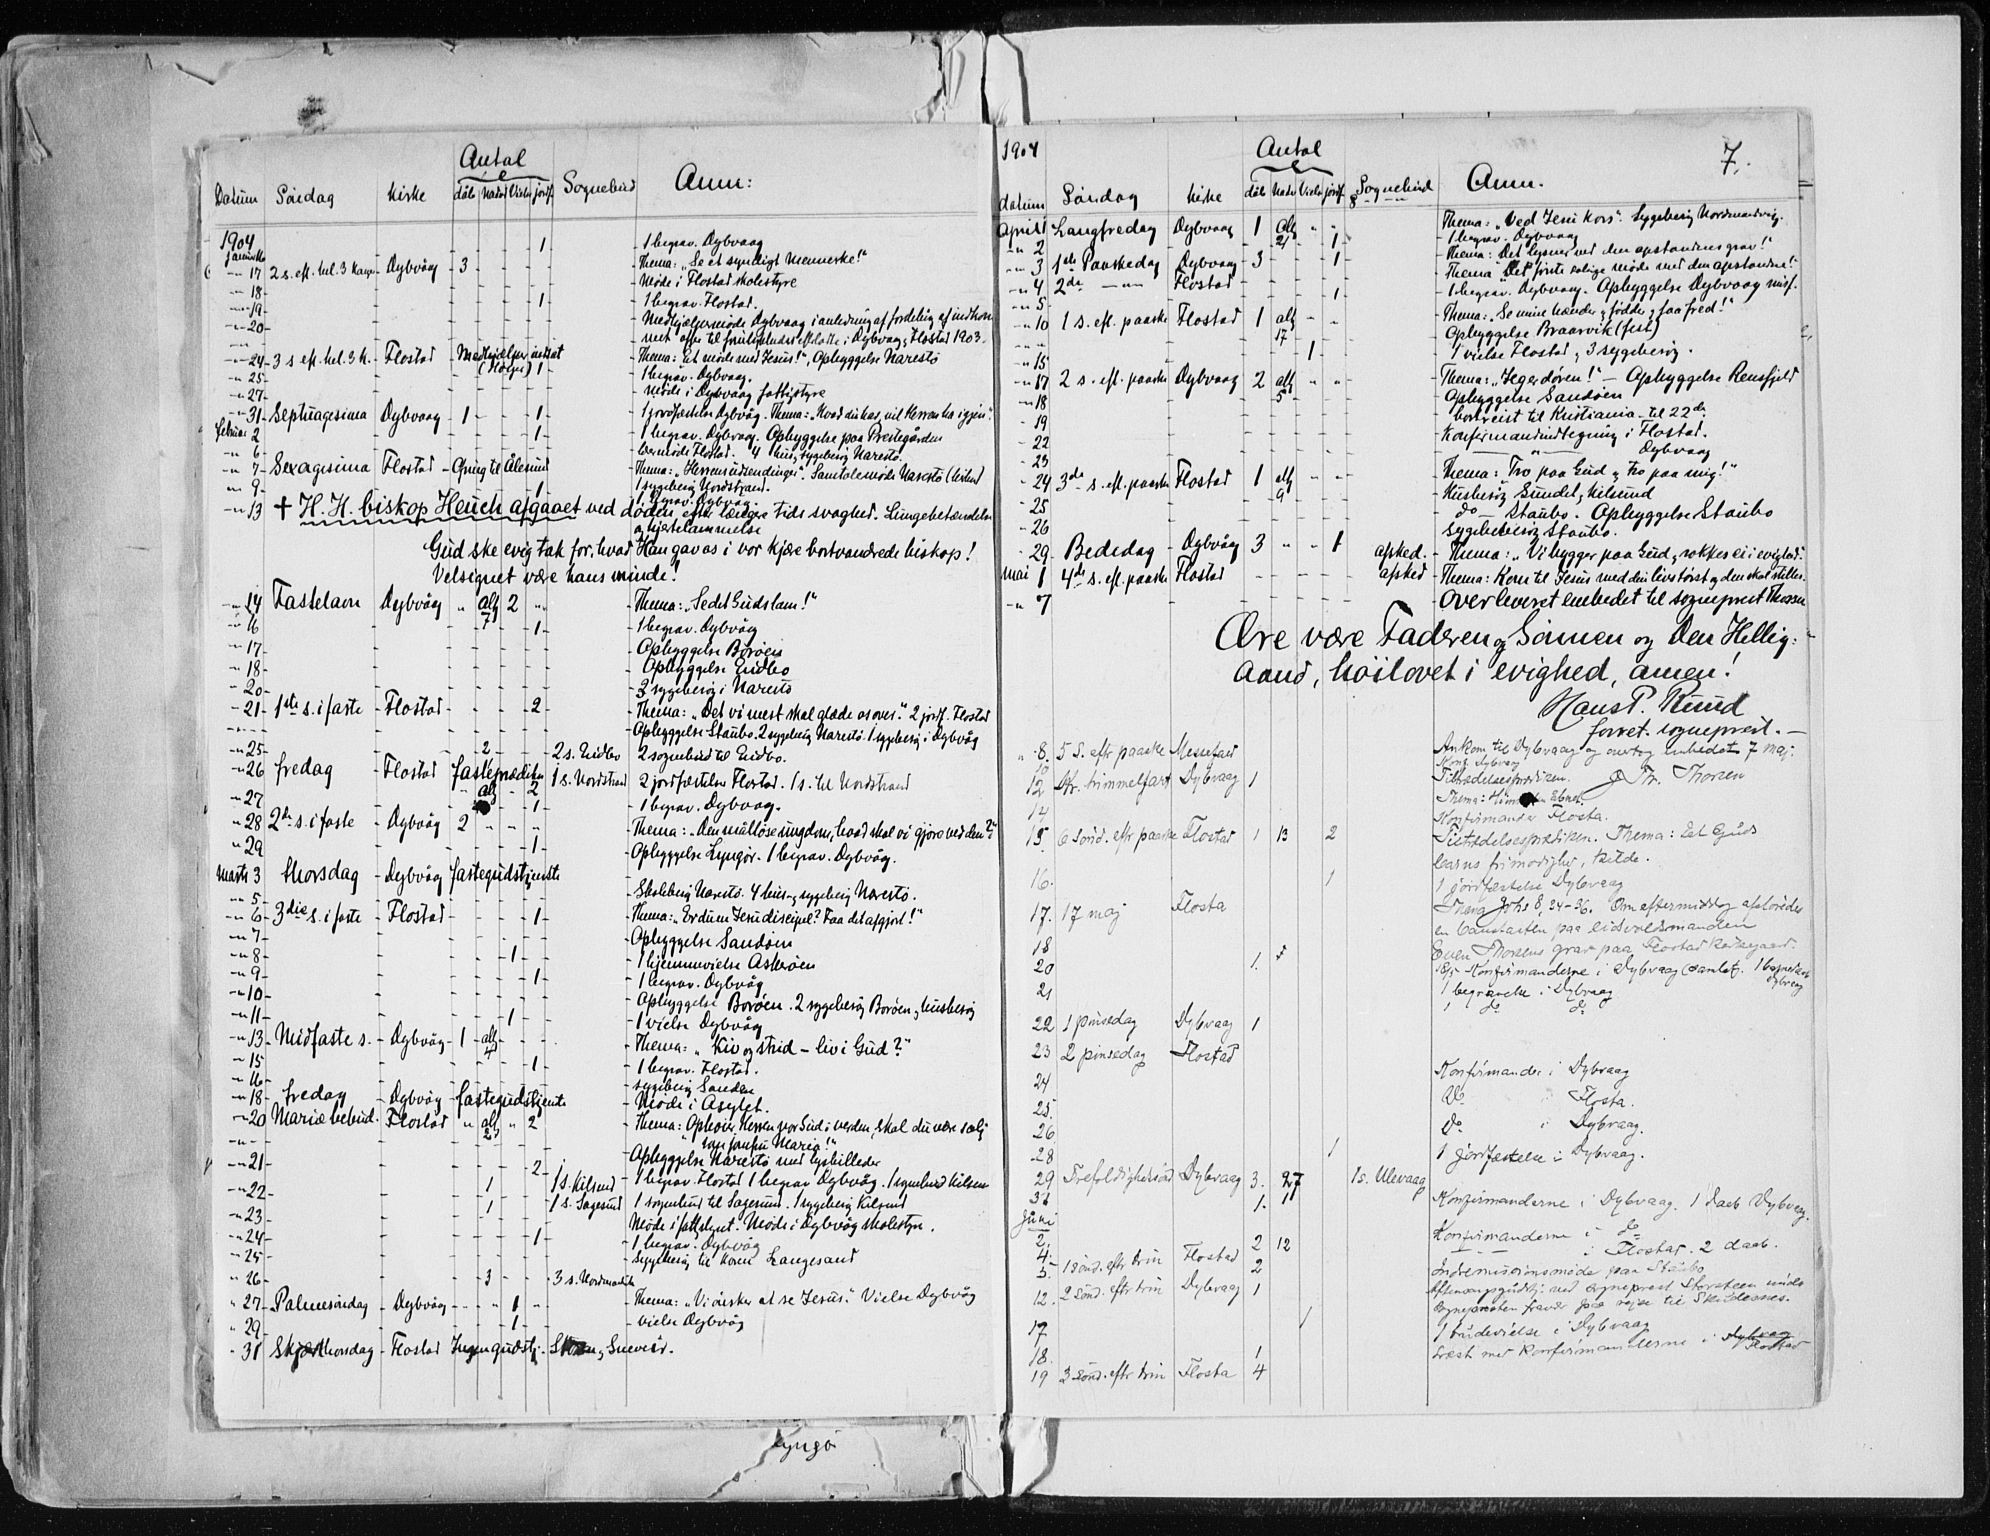 Antal
Datum Søndag kirke døbt Nadv Viede jordf Sognebud Anm:
1904
Januar
1 1 begrav. Dybvaag
17 2 s. eft. hel. 3 kong. Dybvåg 3 Thema: "Se et syndigt Menneske!"
18 Møde i Flostad skolestyre
19 1 1 begrav. Flostad.
20 Medhjælpermøde Dybvaag i anledning af fordeling af indkom
met offer til Dybvag, Flostad 1903.
24 3 s eft. hel. 3 k. Flostad Medhjælper indsat Thema: "Et møde med Jesus!", Opbyggelse Narestø
25 1 1 begrav. Dybvaag.
27 Møde i Dybvaag fattigstyre
31 Septuagesima Dybvaag 1 1 1 jordfæstelse Dybvåg. Thema: "Hvad du har, vil Herren ha igjen".
Februar 2 1 1 begrav. Dybvaag. Opbyggelse paa Prestegården
6 Flostad. 4 hus, sygebesøg Narestø.
7 Sexagesima Flostad Ofring til Ålesund Thema: "Herrens udsendinger". Samtalemøde Narestø
9 1 sygebesøg Nordstrand.
1 1 begrav. Dybvaag
13 + H. H. biskop Heuch afgaaet ved døden efter længre tids svaghed. Lungebetændelse
og hjertelammelse
Gud ske evig tak for, hvad Han gav os i vor kjære bortvandrede biskop!
Velsignet være hans minde!
14 Fastelavn Dybvåg " alg 7 2 " Thema: "Se det Guds lam!"
16 1 1 begrav. Dybvåg
17 Opbyggelse Borøen
18 Opbyggelse Eidbo
20 3 sygebesøg i Narestø
21 1ste s. i faste Flostad 2 Thema: "Det vi mest skal glæde os over." 2 jordf. Flostad
Opbyggelse Staubo. 2 sygebesøg Narestø. 1 sygebesøg i Dybvåg
25 2 2 s. Eidbo 2 sognebud til Eidbo.
26 fredag Flostad fasteprædiken 2 1 s. Nordstrand 2 jordfæstelser Flostad. 1 s. til Nordstrand
27 1 1 begrav. Dybvaag.
28 2den s. i faste Dybvåg 2 Thema: "Den målløse ungdom, hvad skal vi gjøre ved den?"
29 1 Opbyggelse Lyngør. 1 begrav. Dybvåg.
Marts 3 thorsdag Dybvåg fastegudstjeneste
5 Skolebesøg Narestø. 4 hus- og sygebesøg Narestø.
6 3die s. i faste Flostad 1 Thema: "Er du en Jesu discipel? Faa det afgjort!"
7 Opbyggelse Sandøen
8 1 1 hjemmevielse Askerøen
9 1 1 begrav. Dybvåg
10 Opbyggelse Borøen. 2 sygebesøg Borøen, husbesøg
11 1 1 vielse Dybvåg
13 Midfaste s. Dybvåg 1 alg 4 Thema: "Kiv og strid – liv i Gud?"
15 1 1 begrav. Flostad.
16 sygebesøg Sanden
18 fredag Dybvåg fastegudstjeneste Møde i Asylet.
20 Mariæ bebud. Flostad " alg 2 " 2 Thema: "Ophøier Herren vor Gud i verden, skal du være salig
som jomfru Maria!"
Opbyggelse Narestø med lysbilleder
21 2 1 begrav. Flostad 1 begrav Dybvåg. 1 sognebud Kilsund
22 1 1 s. Kilsund
1 1 s. Sagesund 1 sognebud til Sagesund. 1 sygebesøg Kilsund
23 Møde i fattigstyret. Møde i Dybvåg skolestyre.
24 1 1 begrav. Dybvåg
25 sygebesøg til konen Langesand
26 3 3 s. Nordmandvik
27 Palmesøndag Dybvåg " 1 " Thema: "Vi ønsker at se Jesus." Vielse Dybvåg
29 vielse Dybvåg
31 Skjærthorsdag Flostad Ingen gudstj. Storm og Sneveir.
1904 Antal 7.
datum Søndag kirke døbt Nadv Viede jordf Sognebud Anm.
April 1 Langfredag Dybvaag 1 alg 21 " " Thema: "Ved Jesu kors". Sygebesøg Nordmandvig.
2 1 1 begrav. Dybvaag
3 1ste Paaskedag Dybvaag 3 1 Thema: "Det lysner ved den opstandnes grav!"
4 2de Flostad Thema "Det første salige møde med den opstandne!"
5 1 1 begrav. Dybvaag. Opbyggelse Dybvaag
10 1 s. eft. paaske Flostad 1 alg 17 Thema: "Se mine hænder og fødder og faa fred!"
Opbyggelse Braarvik
15 1 1 vielse Flostad, 3 sygebesøg.
17 2 s. eft. paaske Dybvaag 2 alg 5 " " Thema: "Jeg er døren!" – Opbyggelse Rensfjeld
18 Opbyggelse Sandøen
19 bortreist til Kristiania – til 22de
22 Konfirmandindtegning i Flostad.
23 Dybvaag
24 3de s. eft. paaske Flostad 1 alg 9 " " Thema: "Tro paa Gud og tro paa mig!"
25 Husbesøg Sundet, Kilsund
do – Staubo. Opbyggelse Staubo
26 sygebesøg Staubo.
29 Bededag Dybvåg 3 " " 1 afsked. Thema: "Vi bygger paa Gud, rokkes ei i evighed."
Mai 1 4de s. eft. paaske Flostad afsked Thema: Kom til Jesus med din livstørst og den skal stilles.
7 Overleveret embedet til sogneprest Thorsen
Ære være Faderen og Sønnen og Den Hellig-
aand, høilovet i evighed, amen!
Hans P. Ruud
forret. sogneprest. –
8. 5 S. eftr paaske Messefald Ankom til Dybvaag og overtog embedet 7 maj.
10 Konf. Dybvag
12 Kr. himmelfart Dybvaag 1 Tiltrædelsesprædiken. J Th. Thorsen
14 Konfirmander Flosta.
15. 6 sønd. eftr paaske Flostad 1 13 2 Tiltrædelsesprædiken. Thema: Et Guds
barns frimodighed, kilde.
16. 1 1 jordfæstelse Dybvaag
17. 17 maj Flosta Thema Johs 8, 24-36. Om eftermiddag afsløredes
en bautasten paa eidsvoldsmanden
18 Even Thorsens grav paa Flostad kirkegaard.
20 1. Konfirmanderne i Dybvaag
21 1 begravelse i Dybvaag
1 do do
22 1 pinsedag Dybvaag 1
23 2 pinsedag Flostad
24 Konfirmander i Dybvaag
25. Do Flosta.
26 Do i Dybvaag.
28 1 1 jordfæstelse i Dybvaag.
29 Trefoldighedssønd Dybvaag 3. 27 1 s. Ulevaag
31 1. 11 Konfirmanderne i Dybvaag. 1 daab Dybvaag.
Juni
2. Konfirmanderne i do
4. 2 12 i Flostad. 2 daab.
5. 1 sønd. eftr trin Flostad 2 Indremissionsmøde paa Staubo
12. 2 sønd. eftr trin Dybvaag 1 ved sogneprest Storsteen mens
sognepresten fravær paa reise til
17. 1 1 brudevielse i Dybvaag
18. 1 Læst med Konfirmanderne i Dybvaag Flostad
19 3 sønd. eftr trin Flosta 4
Lyngø